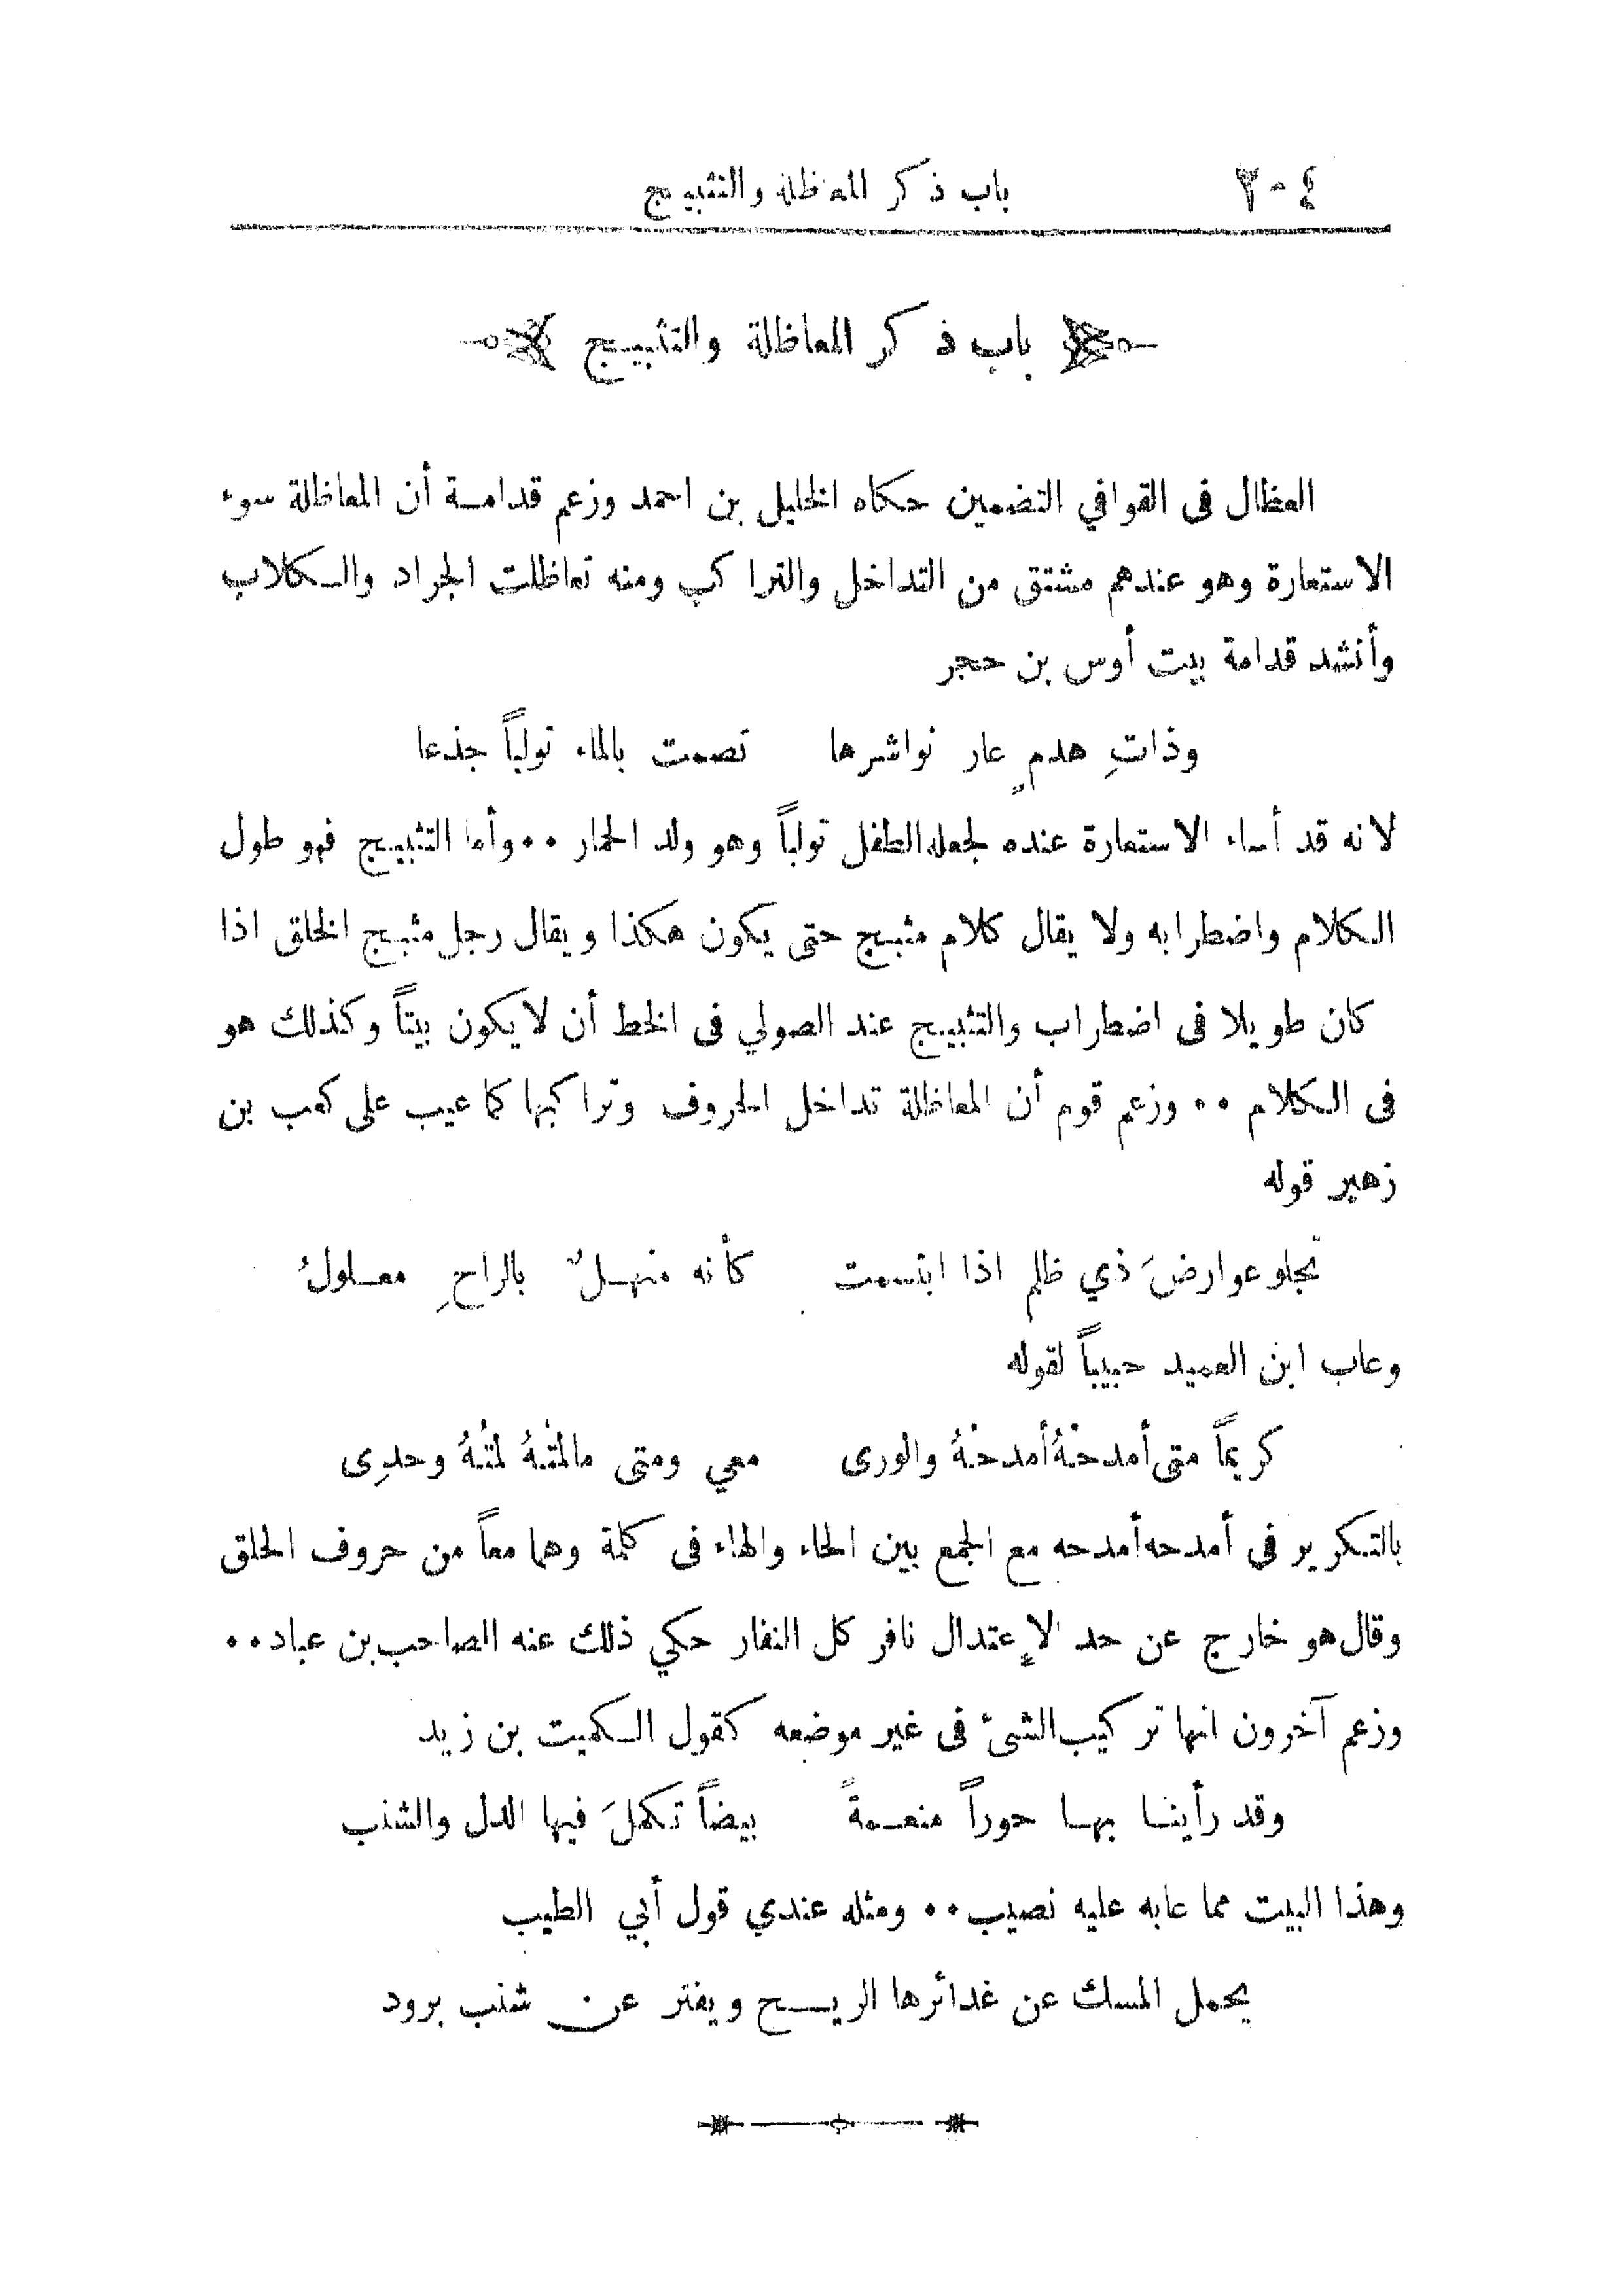 ٢٠٤ باب ذكر المعاظلة والتثبيج
باب ذكر المعاظلة والتثبيج
العظال فى القوافي التضمين حكاه الخليل بن احمد وزعم قدامة أن المعاظلة سوء
الاستعارة وهو عندهم مشتق من التداخل والتراكب ومنه تعاظلت الجراد والكلاب
وأنشد قدامة بيت أوس بن حجر
وذاتِ هدمٍ عار نواشرها تصمت بالماء تولباً جذعا
لانه قد أساء الاستعارة عنده لجعله الطفل تولباً وهو ولد الحمار ٠٠ وأما التثبيج فهو طول
الكلام واضطرابه ولا يقال كلام مثبج حتى يكون هكذا ويقال رجل مثبج الخلق اذا
كان طويلا فى اضطراب والتثبيج عند الصولي فى الخط أن لا يكون بيتاً وكذلك هو
فى الكلام ٠٠ وزعم قوم أن المعاظلة تداخل الحروف وتراكبها كما عيب على كعب بن
زهير قوله
تجلو عوارضَ ذي ظلم اذا ابتسمت كأنه منهلٌ بالراحِ معلولُ
وعاب ابن العميد حبيباً لقوله
كريماً متى أمدحْهُ أمدحْهُ والورى معي ومتى مالمْتُهُ لمْتُهُ وحدِى
بالتكرير في أمدحه أمدحه مع الجمع بين الحاء والهاء فى كلمة وهما معاً من حروف الحلق
وقال هو خارج عن حد الإعتدال نافر كل النفار حكي ذلك عنه الصاحب بن عباد ٠٠
وزعم آخرون انها تركيب الشئ فى غير موضعه كقول الكميت بن زيد
وقد رأينا بها حوراً منعمةً بيضاً تكملَ فيها الدل والشنب
وهذا البيت مما عابه عليه نصيب ٠٠ ومثله عندي قول أبي الطيب
يحمل المسك عن غدائرها الريح ويفتر عن شنب برود